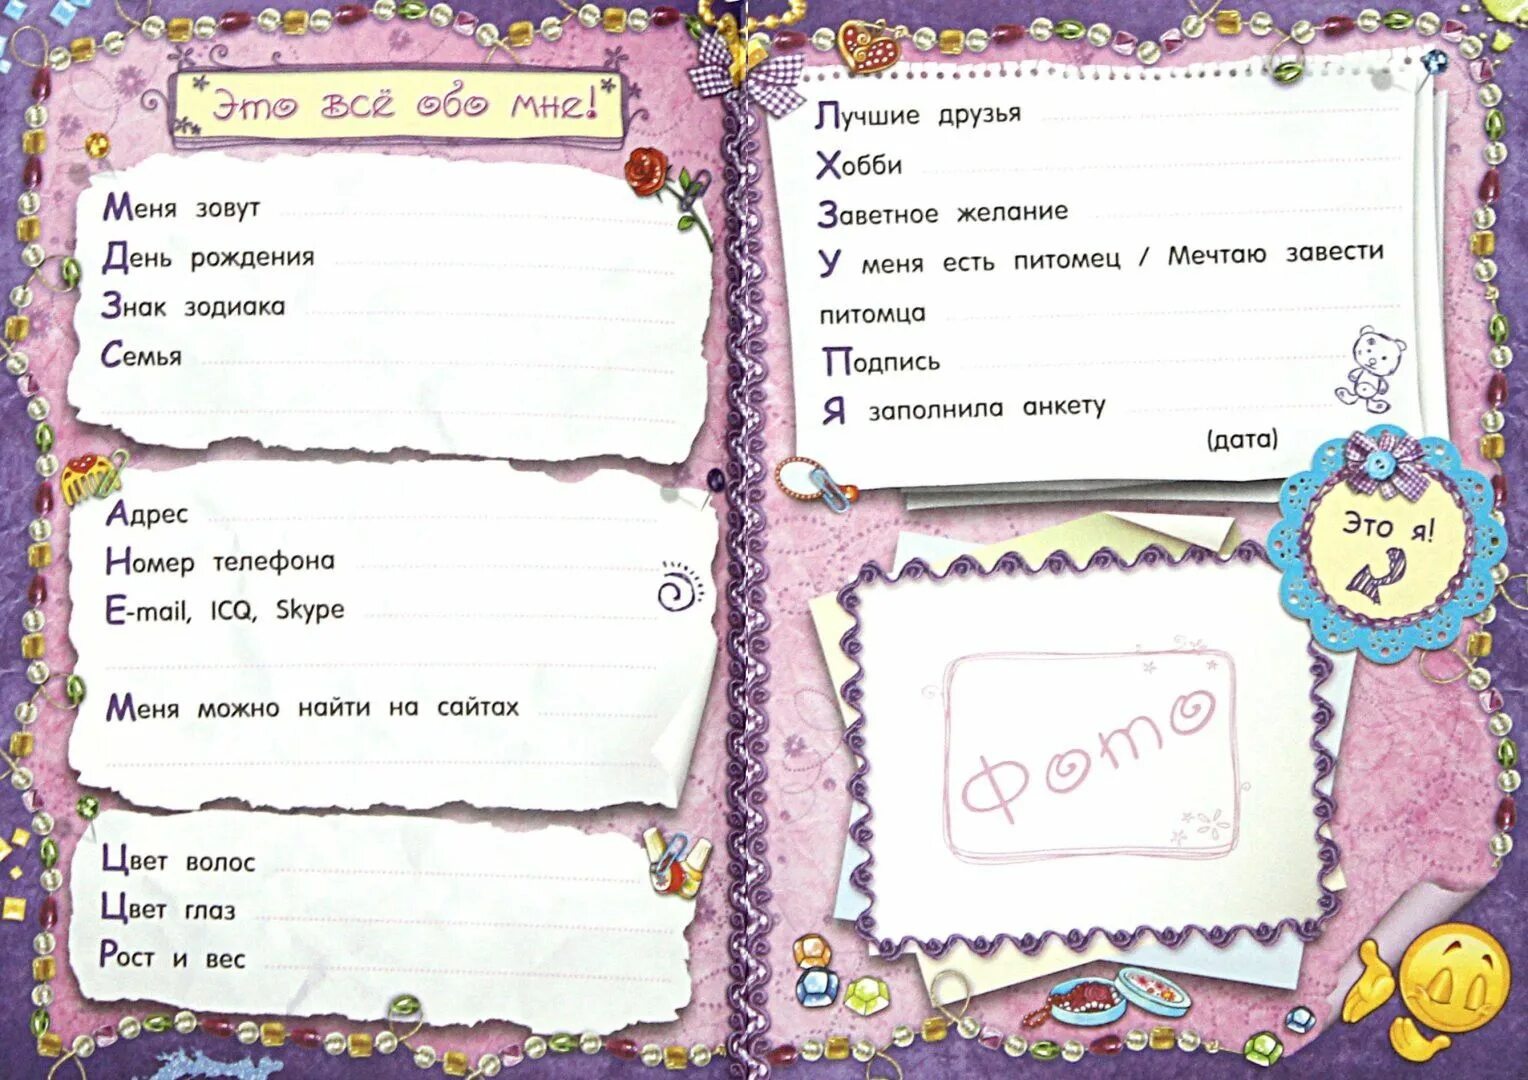 Это всё обо мне!
Меня зовут
День рождения
Знак зодиака
Семья
Адрес
Номер телефона
E-mail, ICQ, Skype
Меня можно найти на сайтах
Цвет волос
Цвет глаз
Рост и вес
Лучшие друзья
Хобби
Заветное желание
У меня есть питомец / Мечтаю завести
питомца
Подпись
Я заполнила анкету
(дата)
Это я!
Фото